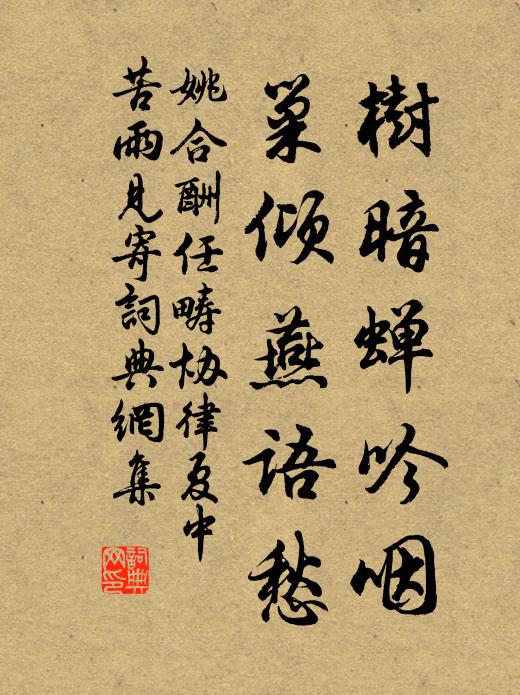 樹暗蝉吟咽
巢倾燕語愁
姚合酬任畴协律夏中
苦雨見寄詞典網集
詞典網印